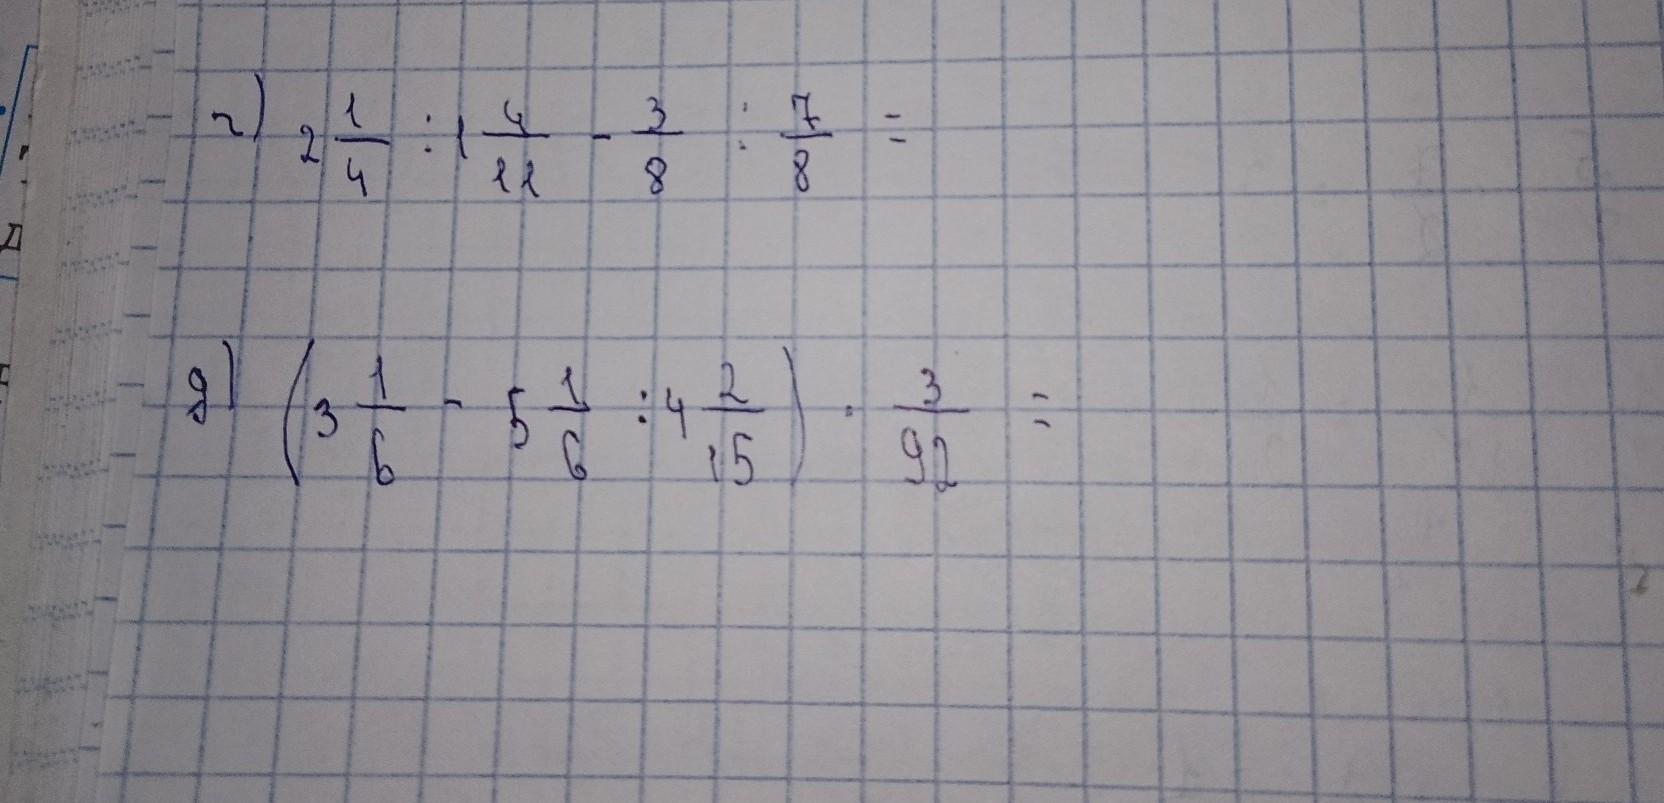 г) 2 1/4 : 1 4/11 - 3/8 : 7/8 =
д) (3 1/6 - 5 1/6 : 4 2/15) · 3/92 =